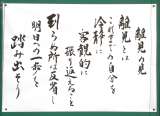 離見の見
離見とは
今の自分を
冷静に
客観的に
振り返ること
到らぬ所は反省し
明日への一歩を
踏み出そう